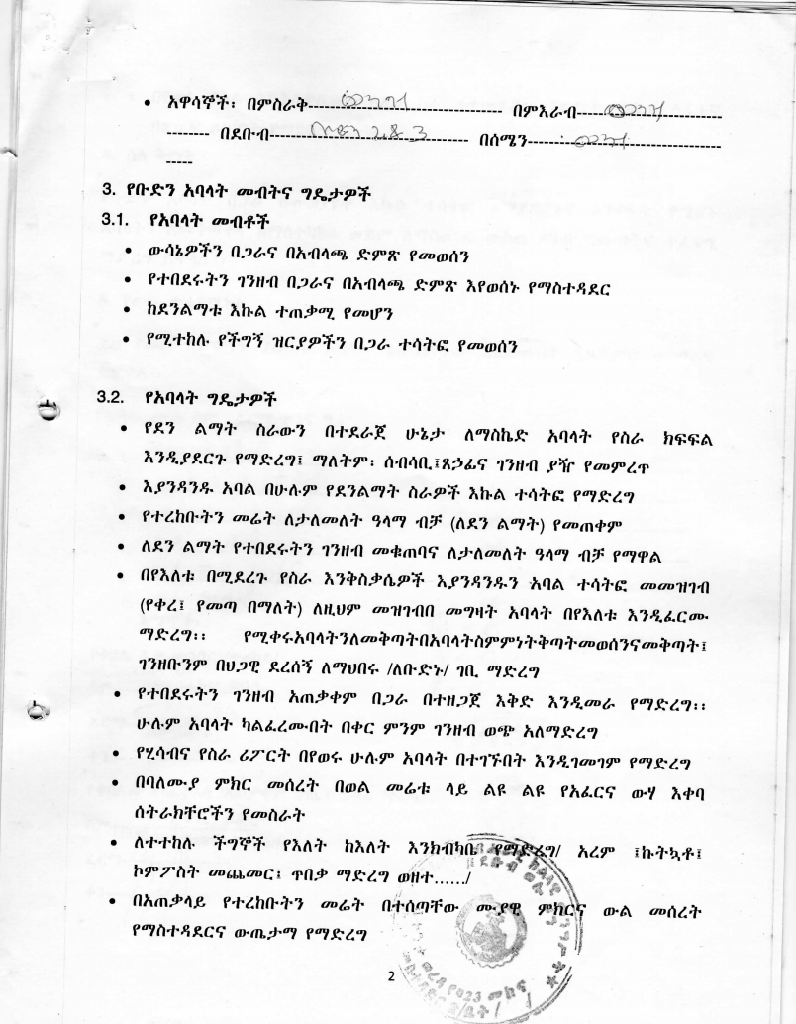 • አዋሳኞች፡ በምስራቅ------------------ በምእራብ------------------
-------- በደቡብ------------------ በሰሜን------------------
-----
3. የቡድን አባላት መብትና ግዴታዎች
3.1. የአባላት መብቶች
• ውሳኔዎችን በጋራና በአብላጫ ድምጽ የመወሰን
• የተበደሩትን ገንዘብ በጋራና በአብላጫ ድምጽ እየወሰኑ የማስተዳደር
• ከደንልማቱ እኩል ተጠቃሚ የመሆን
• የሚተከሉ የችግኝ ዝርያዎችን በጋራ ተሳትፎ የመወሰን
3.2. የአባላት ግዴታዎች
• የደን ልማት ስራውን በተደራጀ ሁኔታ ለማስኬድ አባላት የስራ ክፍፍል
እንዲያደርጉ የማድረግ፤ ማለትም፡ ሰብሳቢ፤ጸኃፊና ገንዘብ ያዥ የመምረጥ
• እያንዳንዱ አባል በሁሉም የደንልማት ስራዎች እኩል ተሳትፎ የማድረግ
• የተረከቡትን መሬት ለታለመለት ዓላማ ብቻ (ለደን ልማት) የመጠቀም
• ለደን ልማት የተበደሩትን ገንዘብ መቁጠባና ለታለመለት ዓላማ ብቻ የማዋል
• በየእለቱ በሚደረጉ የስራ እንቅስቃሴዎች እያንዳንዱን አባል ተሳትፎ መመዝገብ
(የቀረ፤ የመጣ በማለት) ለዚህም መዝገብበ መግዛት አባላት በየእለቱ እንዲፈርሙ
ማድረግ፡፡ የሚቀሩአባላትንለመቅጣትበአባላትስምምነትቅጣትመወሰንናመቅጣት፤
ገንዘቡንም በህጋዊ ደረሰኝ ለማህበሩ /ለቡድኑ/ ገቢ ማድረግ
• የተበደሩትን ገንዘብ አጠቃቀም በጋራ በተዘጋጀ እቅድ እንዲመራ የማድረግ፡፡
ሁሉም አባላት ካልፈረሙበት በቀር ምንም ገንዘብ ወጭ አለማድረግ
• የሂሳብና የስራ ሪፖርት በየወሩ ሁሉም አባላት በተገኙበት እንዲገመገም የማድረግ
• በባለሙያ ምክር መሰረት በወል መሬቱ ላይ ልዩ ልዩ የአፈርና ውሃ እቀባ
ሰትራክቸሮችን የመስራት
• ለተተከሉ ችግኞች የእለት ከእለት እንክብካቤ የማድረግ/ አረም ፤ኩትኳቶ፤
ኮምፖስት መጨመር፤ ጥበቃ ማድረግ ወዘተ....../
• በአጠቃላይ የተረከቡትን መሬት በተሰጣቸው ሙያዊ ምክርና ውል መሰረት
የማስተዳደርና ውጤታማ የማድረግ
2